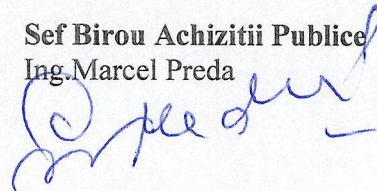 Sef Birou Achizitii Publice
Ing.Marcel Preda